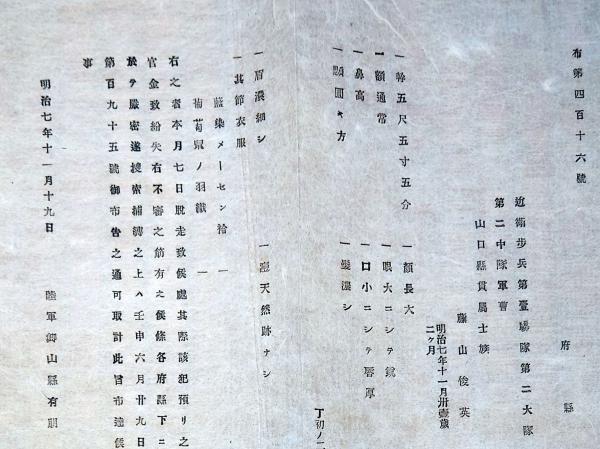 布第四百十六號
府縣
近衛步兵第壹聯隊第二大隊
第二中隊軍曹
山口縣貫屬士族
藤山俊英
明治七年十一月卅壹歲
二ヶ月
一幹五尺五寸五分
一顏長大
一額通常
一眼大ニシテ銳
一鼻高
一口小ニシテ唇厚
一頤圓キ方
一髮濃シ
丁初ノ一
一眉濃細シ
一痣天然跡ナシ
一其節衣服
藍染メーセン袷 一
葡萄鼠ノ羽織 一
右之者本月七日脫走致候處其際該犯預リ之
官金致紛失右不審之筋有之候條各府縣下ニ
於テ嚴密遂搜索捕縛之上ハ壬申六月廿九日
第百九十五號御布告之通可取計此旨布達候
事
明治七年十一月十九日
陸軍卿山縣有朋